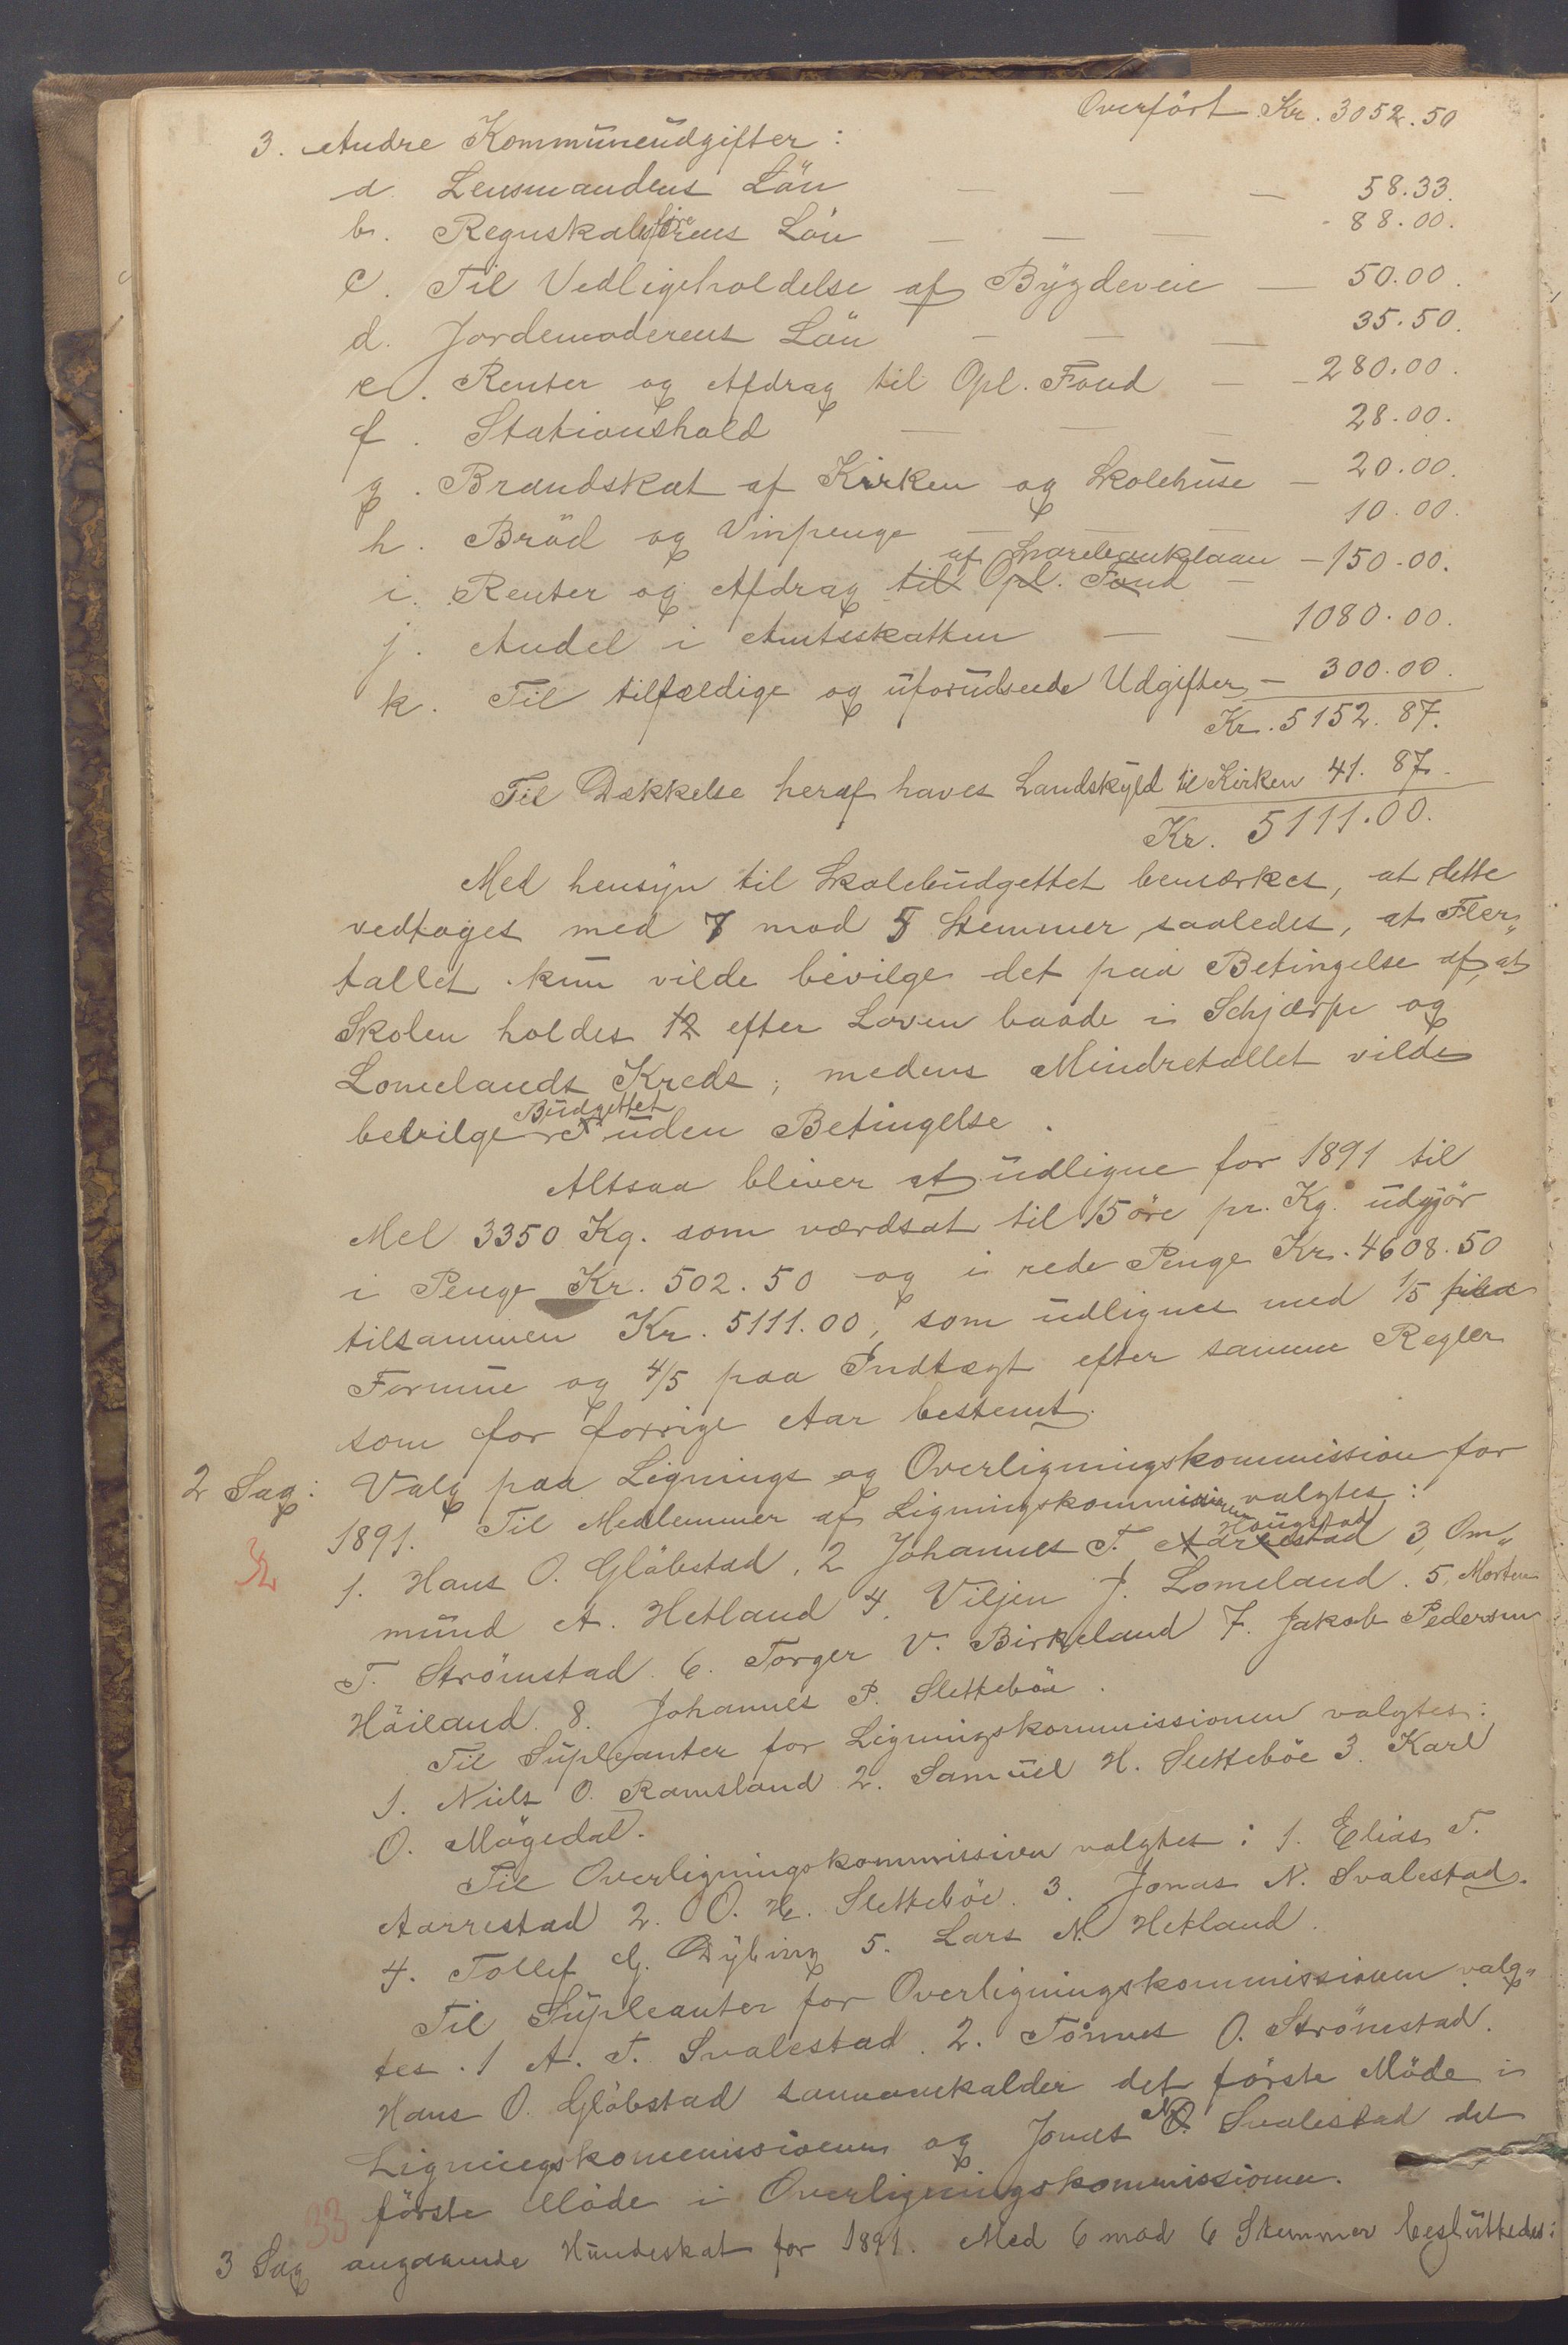 Overført Kr. 3052.50
3. Andre Kommuneudgifter:
a. Lensmandens Løn — — — 58.33.
b. Regnskabsførerens Løn — — — - 88.00.
c. Til Vedligeholdelse af Bygdeveie — 50.00.
d. Jordemoderens Løn — — — 35.50.
e. Renter og Afdrag til Opl. Fond — - 280.00.
f. Stationshold — — — 28.00.
g. Brandskat af Kirken og Skolehuse — 20.00.
h. Brød og Vinpenge — — — 10.00.
i. Renter og Afdrag til Opl. Fond af Sparebanklaan — 150.00.
j. Andel i Amtsskatten — — 1080.00.
k. Til tilfældige og uforudseede Udgifter — 300.00.
Kr. 5152.87.
Til Dækkelse heraf haves Landskyld til Kirken 41.87.
Kr. 5111.00.
Med hensyn til Skolebudgettet bemærkes, at dette
vedtoges med 7 mod 5 Stemmer, saaledes, at Fler„
tallet kun vilde bevilge det paa Betingelse af, at
Skolen holdes 12 efter Loven baade i Schjærpe og
Lomelands Kreds, medens Mindretallet vilde
bevilge Budgettet uden Betingelse.
Altsaa bliver at udligne for 1891 til
Mel 3350 Kg. som værdsat til 15 øre pr. Kg. udgjør
i Penge Kr. 502.50 og i rede Penge Kr. 4608.50
tilsammen Kr. 5111.00, som udlignes med 1/5
Formue og 4/5 paa Indtægt efter samme Regler
som for forrige Aar bestemt.
2 Sag: Valg paa Lignings og Overligningskommission for
1891. Til Medlemmer af Ligningskommissionen valgtes:
32
1. Hans O. Gløbstad, 2 Johannes T. Aarrestad Haugstad 3, Om„
mund A. Hetland 4. Viljen J. Lomeland. 5, Morten
T. Strømstad. 6. Torger V. Birkeland 7. Jakob Pedersen
Høiland. 8. Johannes P. Slettebøe.
Til Supleanter for Ligningskommissionen valgtes:
1. Niels O. Ramsland 2. Samuel H. Slettebøe 3. Karl
O. Møgedal.
Til Overligningskommissionen valgtes: 1. Elias T.
Aarrestad 2. O. H. Slettebøe. 3. Jonas N. Svalestad.
4. Tollef G. Dybing 5. Lars N. Hetland.
Til Supleanter for Overligningskommissionen valg„
tes. 1 A. T. Svalestad. 2. Tønnes O. Strømstad.
Hans O. Gløbstad sammenkalder det første Møde i
Ligningskommissionen og Jonas N. Svalestad det
første Møde i Overligningskommissionen.
33
3 Sag angaaende Hundeskat for 1891. Med 6 mod 6 Stemmer besluttedes: